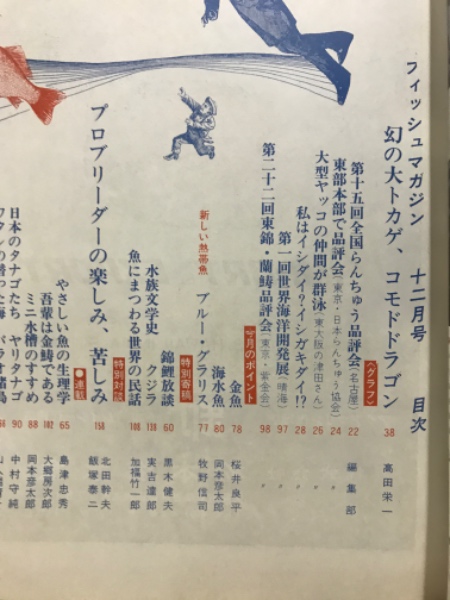 フィッシュマガジン 十二月号 目次
幻の大トカゲ、コモドドラゴン 38 高田栄一
〈グラフ〉
第十五回全国らんちゅう品評会(名古屋) 22 編集部
東部本部で品評会(東京・日本らんちゅう協会) 24 〃
大型ヤッコの仲間が群泳(東大阪の津田さん) 26 〃
私はイシダイ?イシガキダイ!? 28 〃
第一回世界海洋開発展(晴海) 97 〃
第二十二回東錦・蘭鋳品評会(東京・紫金会) 98 〃
月のポイント
金魚 78 桜井良平
海水魚 80 岡本彦太郎
新しい熱帯魚 ブルー・グラリス 77 牧野信司
特別寄稿
錦鯉放談 60 黒木健夫
水族文学史 クジラ 130 実吉達郎
魚にまつわる世界の民話 108 加福竹一郎
特別対談
プロブリーダーの楽しみ、苦しみ 158 北田幹夫 飯塚泰二
●連載
やさしい魚の生理学 65 島津忠秀
吾輩は金鋳である 102 大郷房次郎
ミニ水槽のすすめ 88 岡本彦太郎
日本のタナゴたち ヤリタナゴ 90 中村守純